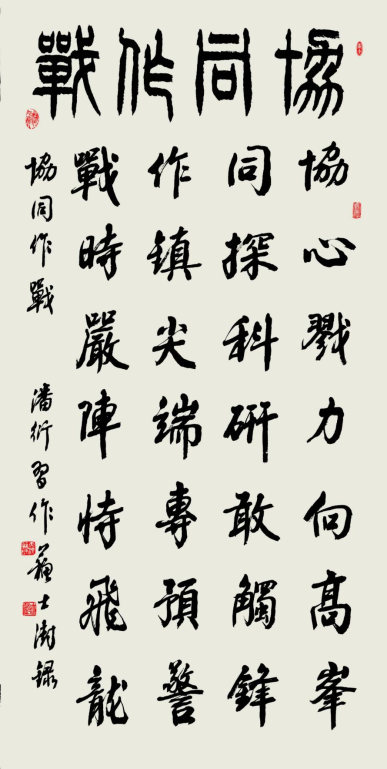 協同作戰
協心戮力向高峯
同探科研敢觸鋒
作鎮尖端專預警
戰時嚴陣恃飛龍
協同作戰 潘衍習作 蘇士澍錄